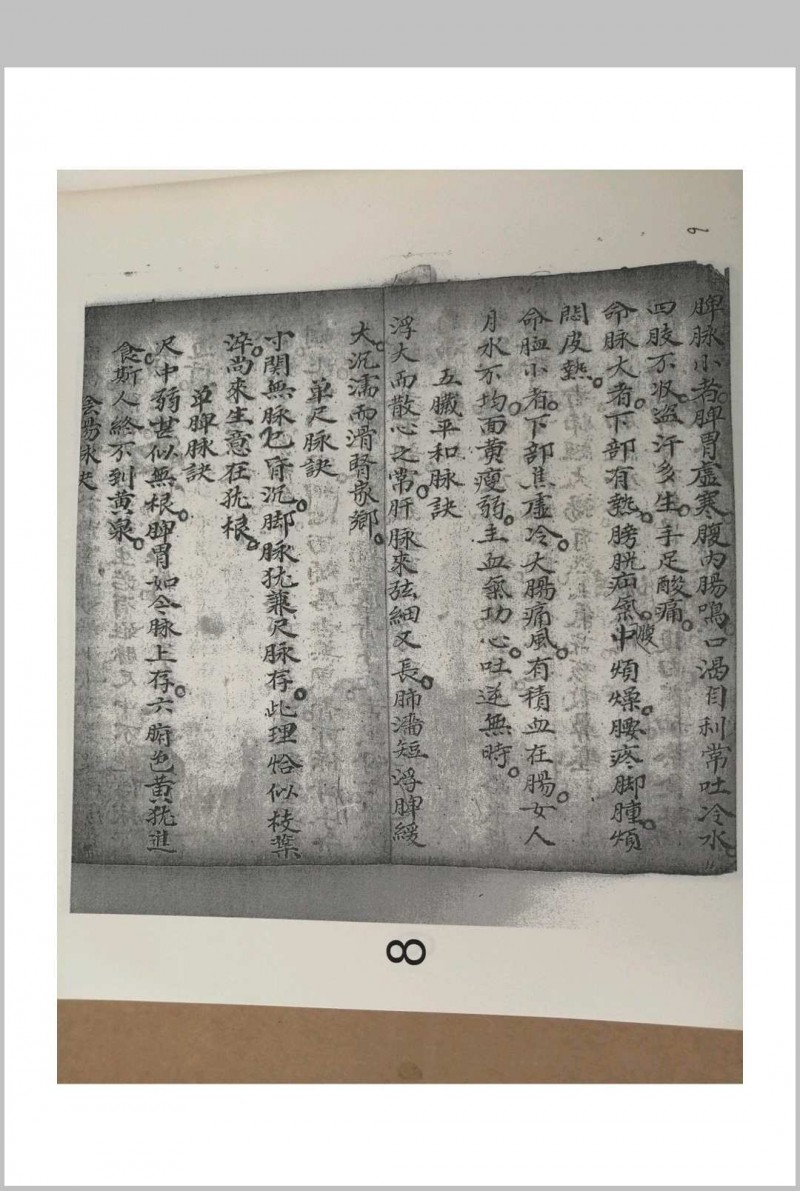 脾脉小者脾胃虛寒腹内腸鳴口渴自利常吐冷水
四肢不收盗汗多生手足酸痛
命脉大者下部有熱膀胱疝氣中腹煩燥腰疼脚腫煩
悶皮熱
命脉小者下部焦虛冷大腸痛風有積血在腸女人
月水不均面黄瘦弱主血氣功心吐逆無時
五臟平和脉訣
浮大而散心之常肝脉來弦細又長肺濇短浮脾緩
大沉濡而滑腎家鄉
单尺脉訣
寸関無脉乞肓沉脚脉犹兼尺脉存此理恰似枝葉
淬尚來生意在犹根
单脾脉訣
尺中弱甚似無根脾胃如今脉上存六腑色黄犹進
食斯人終不到黄泉
陰陽脉史
8